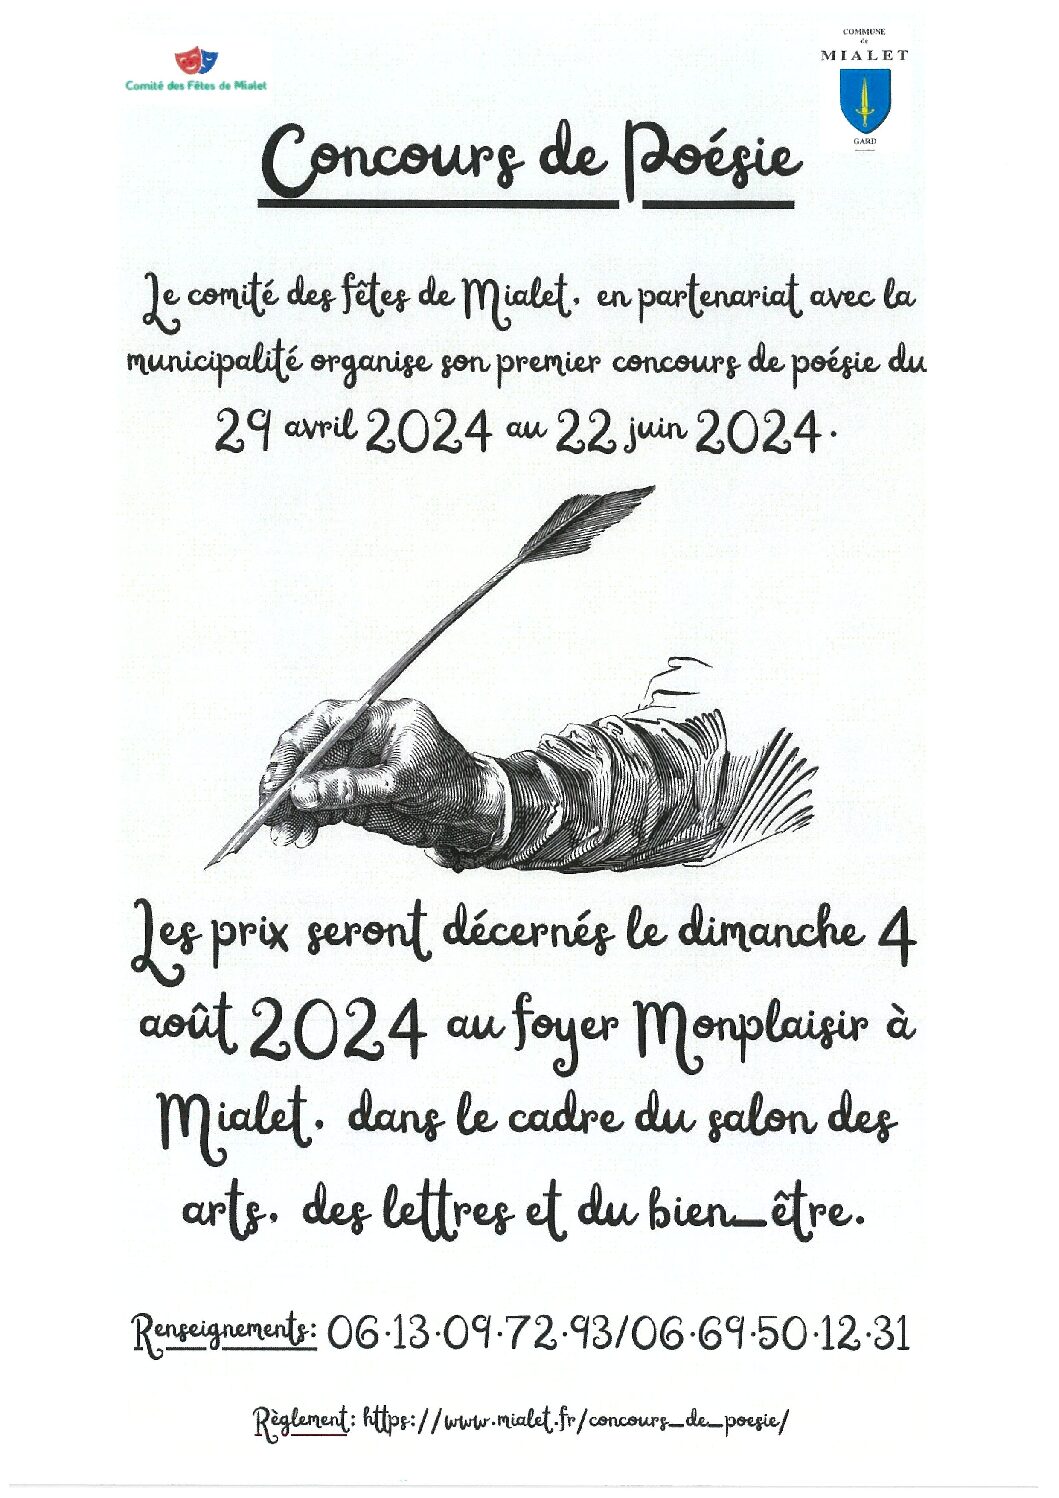 Comité des Fêtes de Mialet
COMMUNE
de
MIALET
GARD
Concours de Poésie
Le comité des fêtes de Mialet, en partenariat avec la
municipalité organise son premier concours de poésie du
29 avril 2024 au 22 juin 2024.
Les prix seront décernés le dimanche 4
août 2024 au foyer Monplaisir à
Mialet, dans le cadre du salon des
arts, des lettres et du bien_être.
Renseignements: 06.13.09.72.93/06.69.50.12.31
Règlement: https://www.mialet.fr/concours_de_poesie/